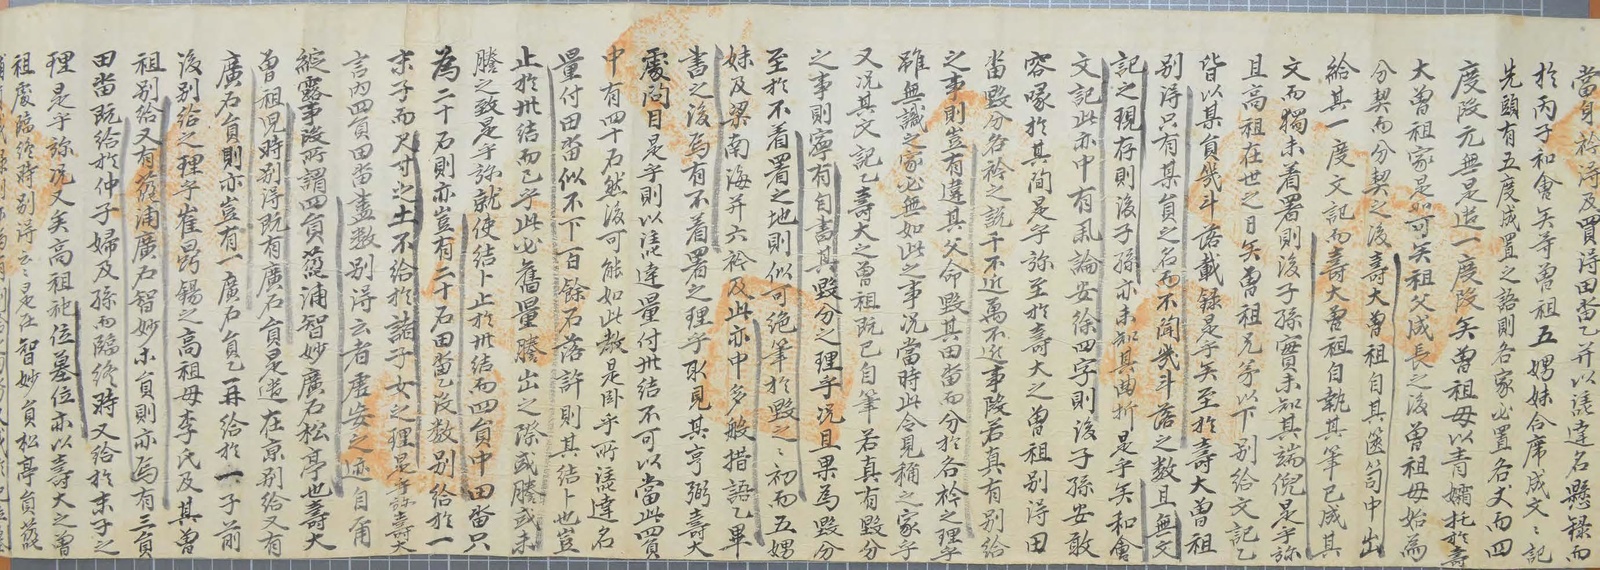 當身衿得及買得田畓乙幷以憑達名懸錄而
於丙子和會矣等曾祖五娚妹合席成文之記
先頭有五度成置之語則各家必置各丈而四
度段元無是遣一度段矣曾祖母以靑孀托於壽
大曾祖家是如可矣祖父成長之後曾祖母始爲
分契而分契之後壽大曾祖自其篋笥中出
給其一度文記而壽大曾祖自執其筆已成其
文而獨未着署則後子孫實未知其端倪是乎旀
且高祖在世之日矣曾祖兄弟以下別給文記乙
皆以某員幾斗落載錄是乎矣至於壽大曾祖
別得只有某員之名而不聞幾斗落之數且無文
記之現存則後子孫亦未知其曲折是乎矣和會
文記此亦中有乱論安徐四字則後子孫安敢
容喙於其間是乎旀至於壽大之曾祖別得田
畓毁分各衿之說千不近萬不近事段若真有別給
之事則豈有違其父命毁其田畓而分於各衿之理乎
雖無識之家必無如此之事況當時此令見稱之家乎
又況其文記乙壽大之曾祖旣已自筆若真有毁分
之事則寧有自書其毁分之理乎況且果爲毁分
至於不着署之地則似可絶筆於毁之之初而五娚
妹及梁南海幷六衿及此亦中多般措語乙畢
書之後焉有不着署之理乎取見其亨弼壽大
處問目是乎則以憑違量付卅結不可以當此四員
中有四十石然後可能如此數是臥乎所憑達名
量付田畓似不下百餘石落許則其結卜也豈
止於卅結而已乎此必舊量謄出之際或謄或未
謄之致是乎旀就使結卜止於卅結而四員中田畓只
爲二十石則亦豈有二十石田畓乙沒數別給於一
末子而尺寸之土不給於諸子女之理是乎旀壽大
言內四員田畓盡數別得云者虛妄之迹自爾
綻露事段所謂四員菠浦智妙廣石松亭也壽大
曾祖兒時別得旣有廣石員是遣在京別給又有
廣石員則亦豈有一廣石員乙再給於一子前
後別給之理乎崔曷錫之高祖母李氏及其曾
祖別給又有菠浦廣石智妙末員則亦焉有三員
田畓旣給於仲子婦及孫而臨終時又給於末子之
理是乎旀況又矣高祖祀位墓位亦以壽大之曾
祖處臨終時別得云云是在智妙員松亭員菠